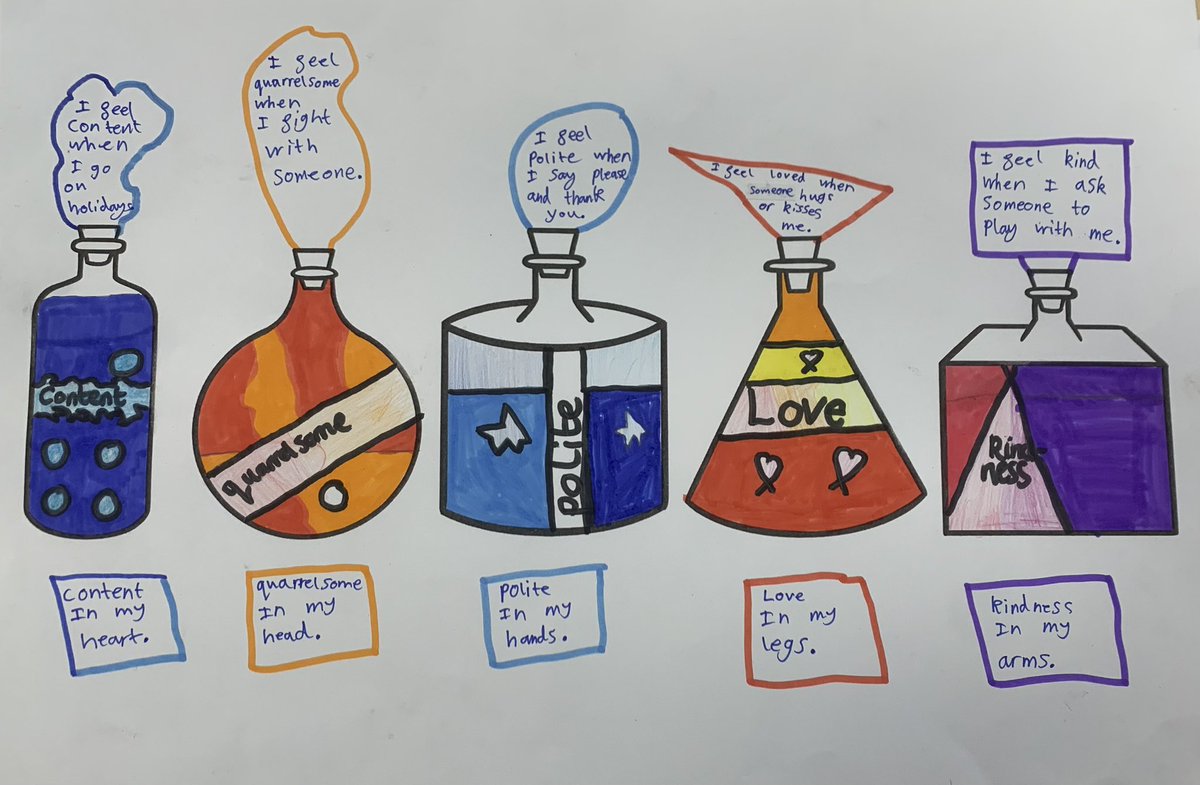 I feel
content
when
I go
on
holidays
I feel
quarrelsome
when
I fight
with
someone.
I feel
Polite when
I say please
and thank
you.
I feel loved when
someone hugs
or kisses
me.
I feel kind
when I ask
someone to
play with me.
Content
quarrelsome
polite
Love
Kind-
ness
content
In my
heart.
quarrelsome
In my
head.
Polite
In my
hands.
Love
In my
legs.
kindness
In my
arms.